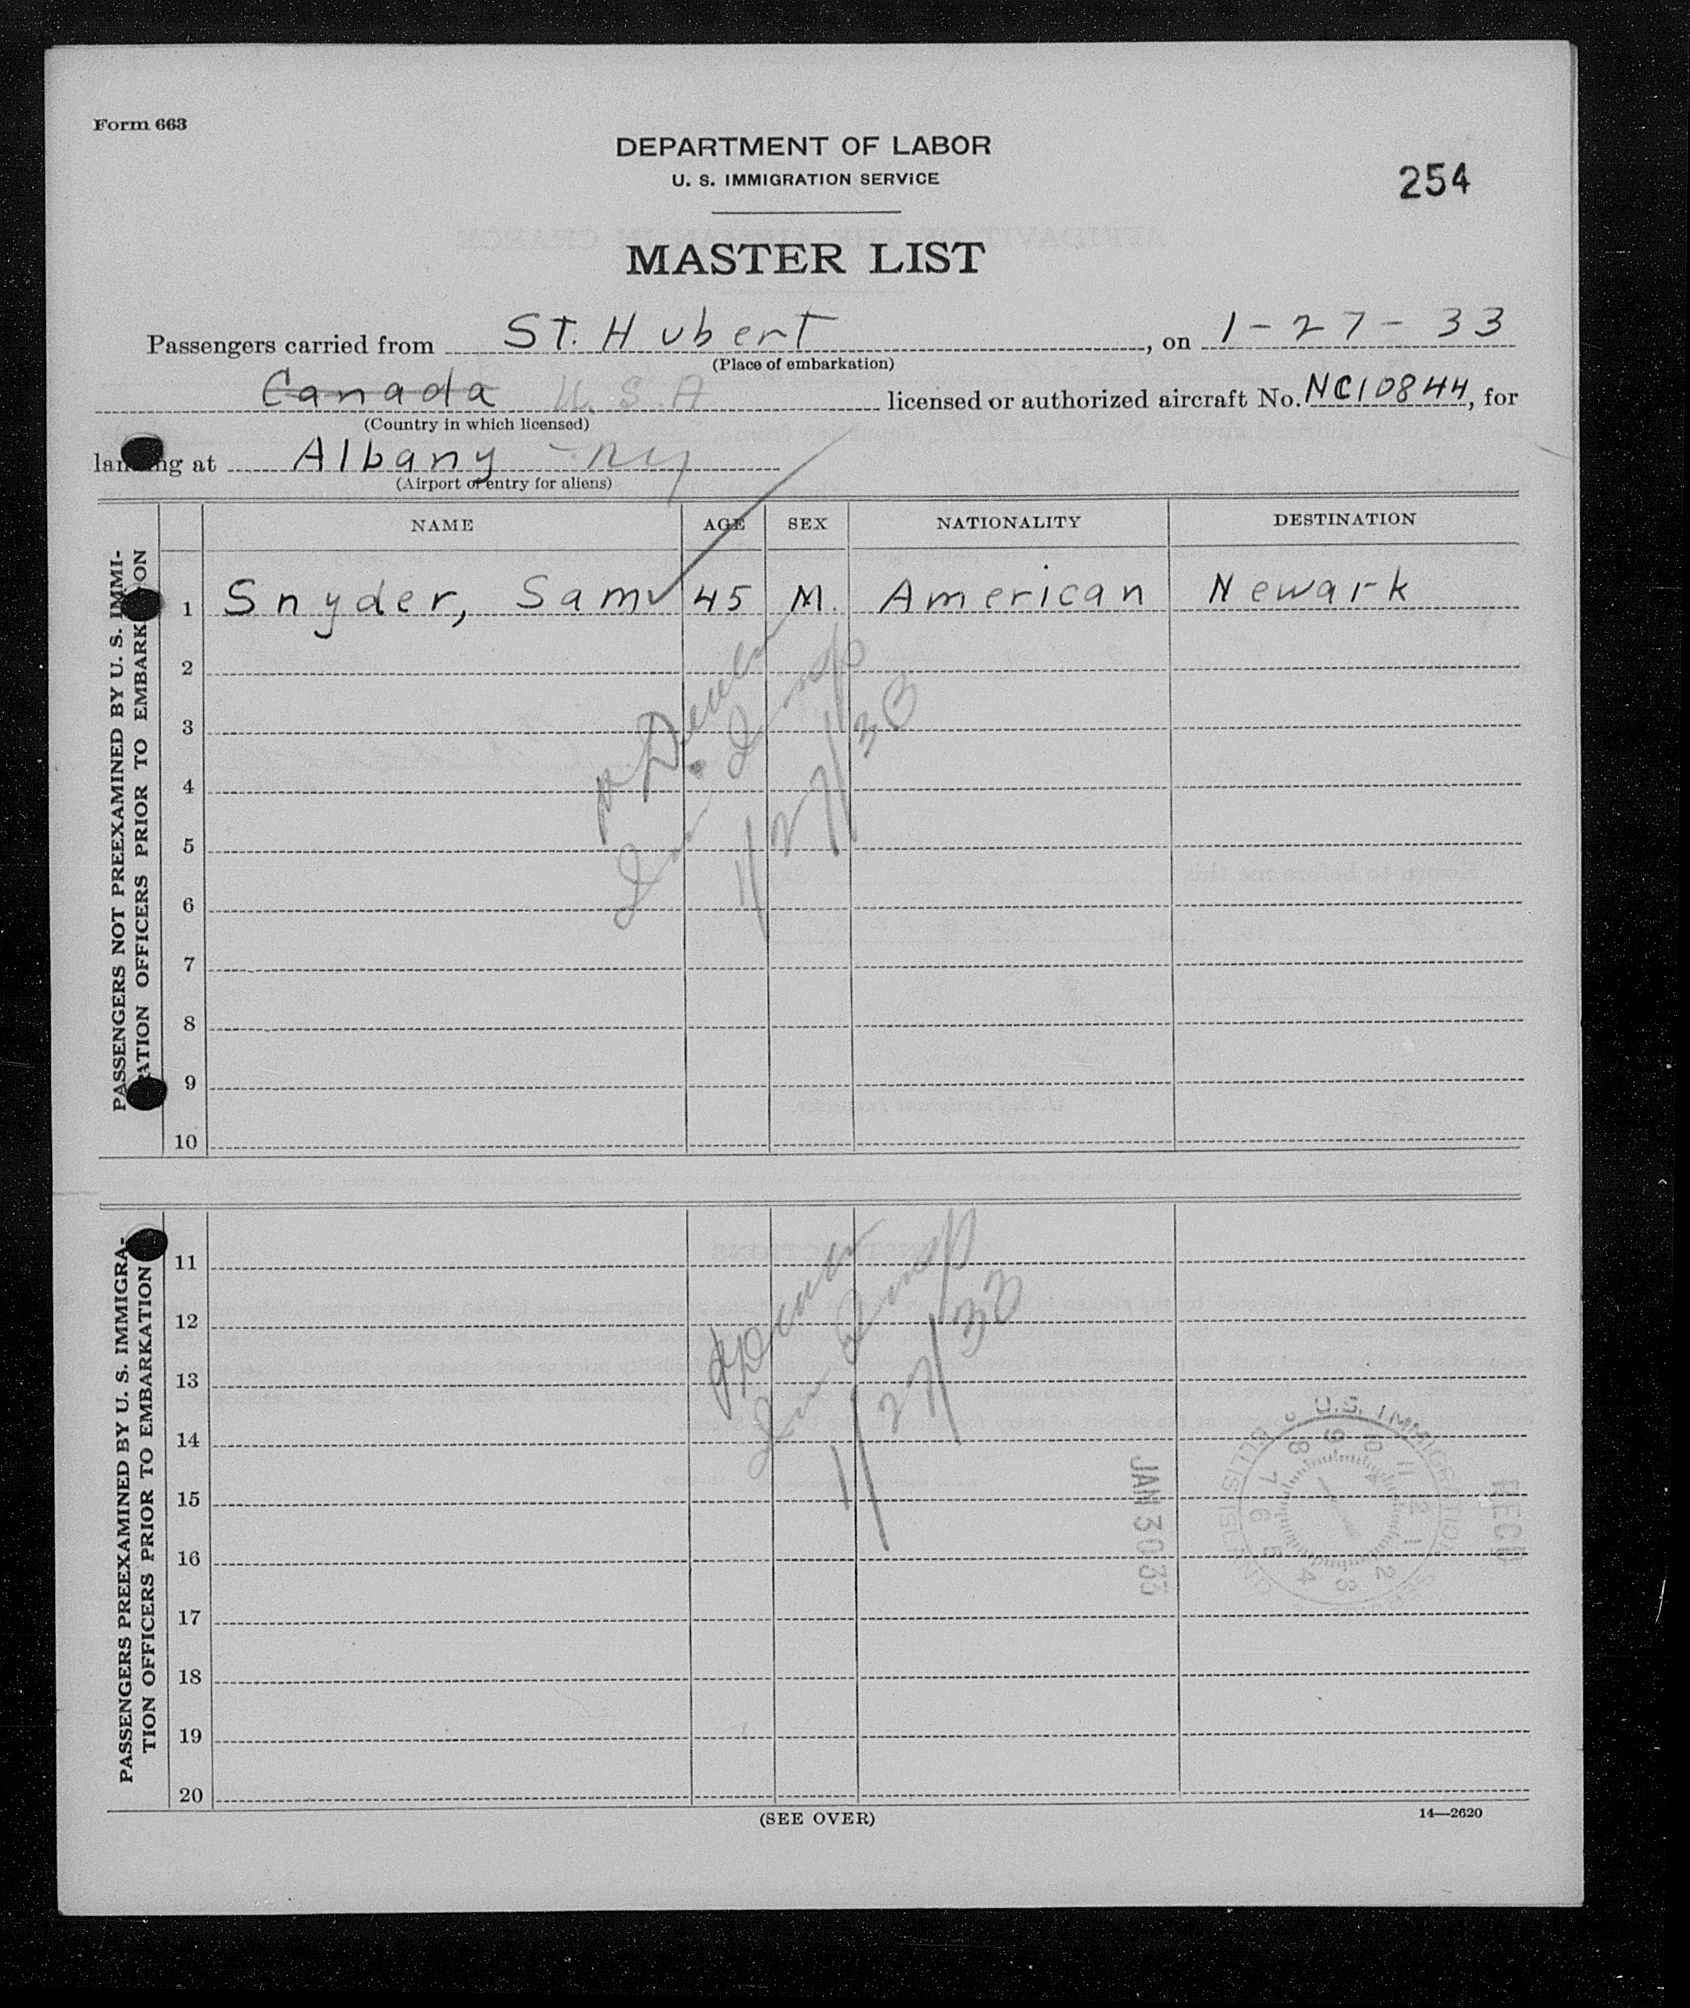 Form 663
DEPARTMENT OF LABOR
U. S. IMMIGRATION SERVICE
254
MASTER LIST
Passengers carried from St. Hubert, on 1-27-33
(Place of embarkation)
Canada U.S.A licensed or authorized aircraft No. NC10844, for
(Country in which licensed)
landing at Albany - NY
(Airport of entry for aliens)
NAME AGE SEX NATIONALITY DESTINATION
PASSENGERS NOT PREEXAMINED BY U. S. IMMI-
RATION OFFICERS PRIOR TO EMBARKATION
1 Snyder, Sam 45 M. American Newark
2
3
4
5
6
7
8
9
10
1/27/33
PASSENGERS PREEXAMINED BY U. S. IMMIGRA-
TION OFFICERS PRIOR TO EMBARKATION
11
12
13
14
15
16
17
18
19
20
1/27/33
JAN 30 33
U.S. IMMIGRATION
ELLIS ISLAND
8 9 10 11 12 1 2 3 4 5 6 7
REC'D
(SEE OVER)
14—2620